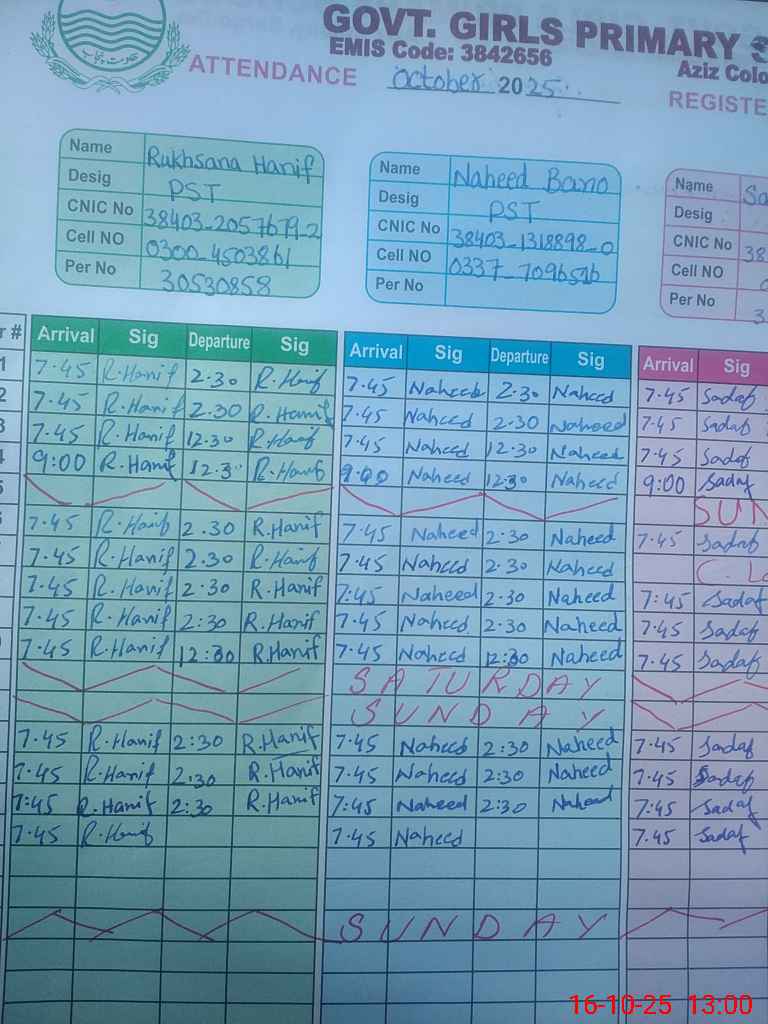 GOVT. GIRLS PRIMARY
EMIS Code: 3842656
Aziz Colo
ATTENDANCE October 2025
REGISTE
Name Rukhsana Hanif
Desig PST
CNIC No 38403-2057679-2
Cell NO 0300-4503861
Per No 30530858
Name Naheed Bano
Desig PST
CNIC No 38403-1318898-0
Cell NO
Per No
Name Sa
Desig
CNIC No 38
Cell NO 0
Per No 3
r # Arrival Sig Departure Sig Arrival Sig Departure Sig Arrival Sig
1 7.45 R.Hanif 2.30 R.Hanif 7.45 Naheed 2.30 Naheed 7.45 Sadaf
2 7.45 R.Hanif 2.30 R.Hanif 7.45 Naheed 2.30 Naheed 7.45 Sadaf
3 7.45 R.Hanif 12.30 R.Hanif 7.45 Naheed 12.30 Naheed 7.45 Sadaf
4 9:00 R.Hanif 12.30 R.Hanif 9.00 Naheed 12.30 Naheed 9:00 Sadaf
5 SUN
7.45 R.Hanif 2.30 R.Hanif 7.45 Naheed 2.30 Naheed 7.45 Sadaf
7.45 R.Hanif 2.30 R.Hanif 7.45 Naheed 2.30 Naheed C. L
7.45 R.Hanif 2.30 R.Hanif 7:45 Naheed 2.30 Naheed 7:45 Sadaf
7.45 R.Hanif 2:30 R.Hanif 7.45 Naheed 2.30 Naheed 7.45 Sadaf
7.45 R.Hanif 12:30 R.Hanif 7.45 Naheed 12:30 Naheed 7.45 Sadaf
SATURDAY
SUNDAY
7.45 R.Hanif 2:30 R.Hanif 7.45 Naheed 2:30 Naheed 7.45 Sadaf
7.45 R.Hanif 2.30 R.Hanif 7.45 Naheed 2:30 Naheed 7.45 Sadaf
7:45 R.Hanif 2:30 R.Hanif 7:45 Naheed 2:30 Naheed 7:45 Sadaf
7.45 R.Hanif 7.45 Naheed 7.45 Sadaf
SUNDAY
16-10-25 13:00